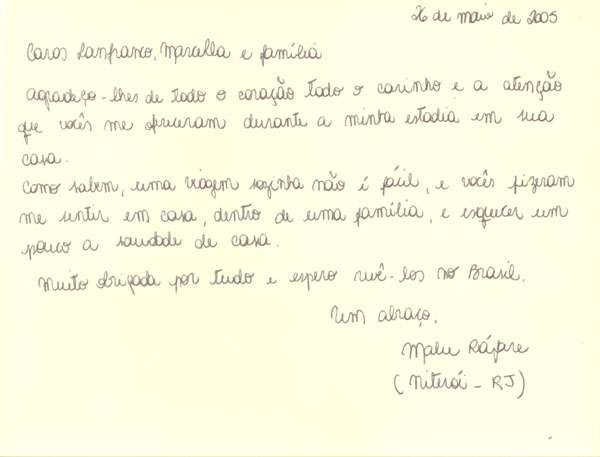 26 de maio de 2005
Caros Lanfranco, Marcella e família
Agradeço-lhes de todo o coração todo o carinho e a atenção
que vocês me ofereceram durante a minha estadia em sua
casa.
Como sabem, uma viagem sozinha não é fácil, e vocês fizeram
me sentir em casa, dentro de uma família, e esquecer um
pouco a saudade de casa.
Muito obrigada por tudo e espero revê-los no Brasil.
Um abraço,
Malu
(Niterói - RJ)